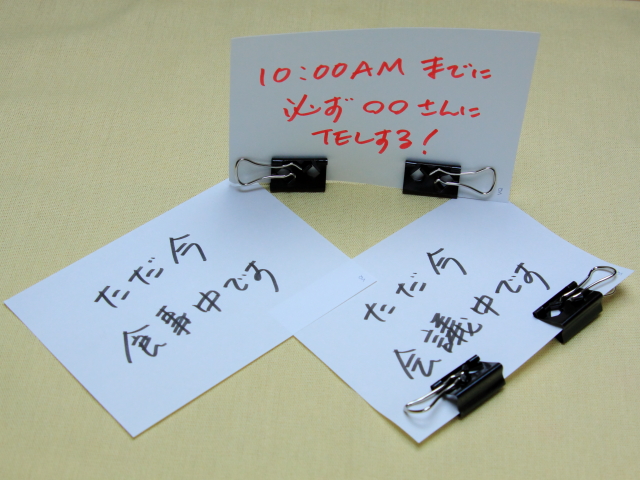 10:00AM までに
必ず 〇〇 さんに
TELする!
ただ今
食事中です
ただ今
会議中です